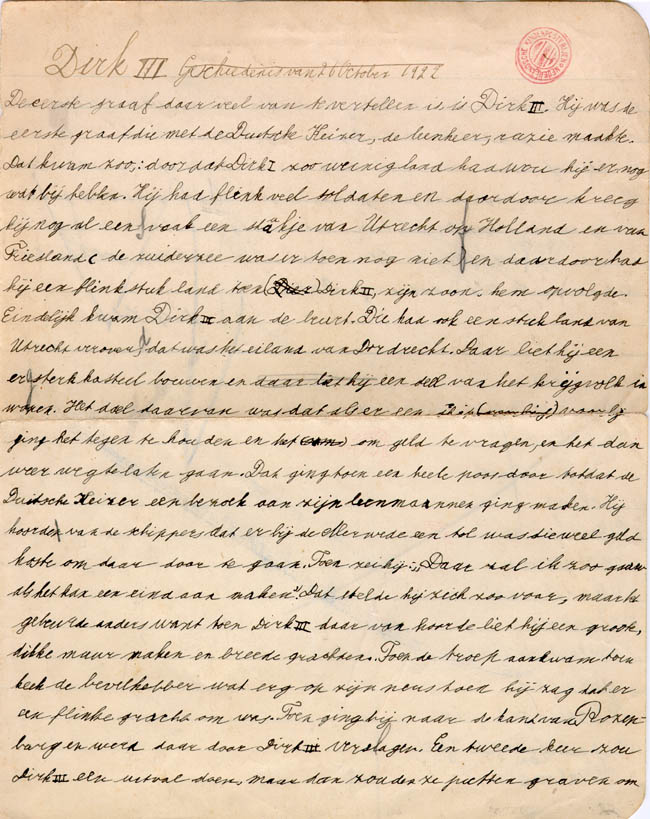 Dirk III Geschiedenis van 26 October 1922
De eerste graaf daar veel van te vertellen is is Dirk III. Hij was de
eerste graaf die met de Duitsche Keizer, de leenheer, ruzie maakte.
Dat kwam zoo,: door dat Dirk I zoo weinig land had wou hij er nog
wat bij hebben. Hij had flink veel soldaten en daardoor kreeg
hij nog al een vaak een stukje van Utrecht op Holland en van
Friesland ( de zuiderzee was er toen nog niet ) en daardoor had
hij een flink stuk land toen Dirk II, zijn zoon. hem opvolgde.
Eindelijk kwam Dirk III aan de beurt. Die had ook een stuk land van
Utrecht veroverd dat was het eiland van Dordrecht. Daar liet hij een
er sterk kasteel bouwen en daar liet hij een deel van het krijgvolk in
wonen. Het doel daarvan was dat als er een schip (voorbij) voorbij
ging het tegen te houden en het om geld te vragen, en het dan
weer weg te laten gaan. Dat ging toen een heele poos door totdat de
Duitsche Keizer een bezoek aan zijn leenmannen ging maken. Hij
hoorden van de schippers dat er bij de Merwede een tol was die veel geld
koste om daar door te gaan. Toen zei hij: „Daar zal ik zoo gauw
als het kan een eind aan maken" Dat stelde hij zich zoo voor, maar het
gebeurde anders want toen Dirk III daar van hoorde liet hij een groote,
dikke muur maken en breede grachten. Toen de troep aankwam toen
keek de bevelhebber wat erg op zijn neus toen hij zag dat er
een flinke gracht om was. Toen ging hij naar de kant van Rozen=
burg en werd daar door Dirk III verslagen. Een tweede keer zou
Dirk III een uitval doen, maar dan zouden ze putten graven om